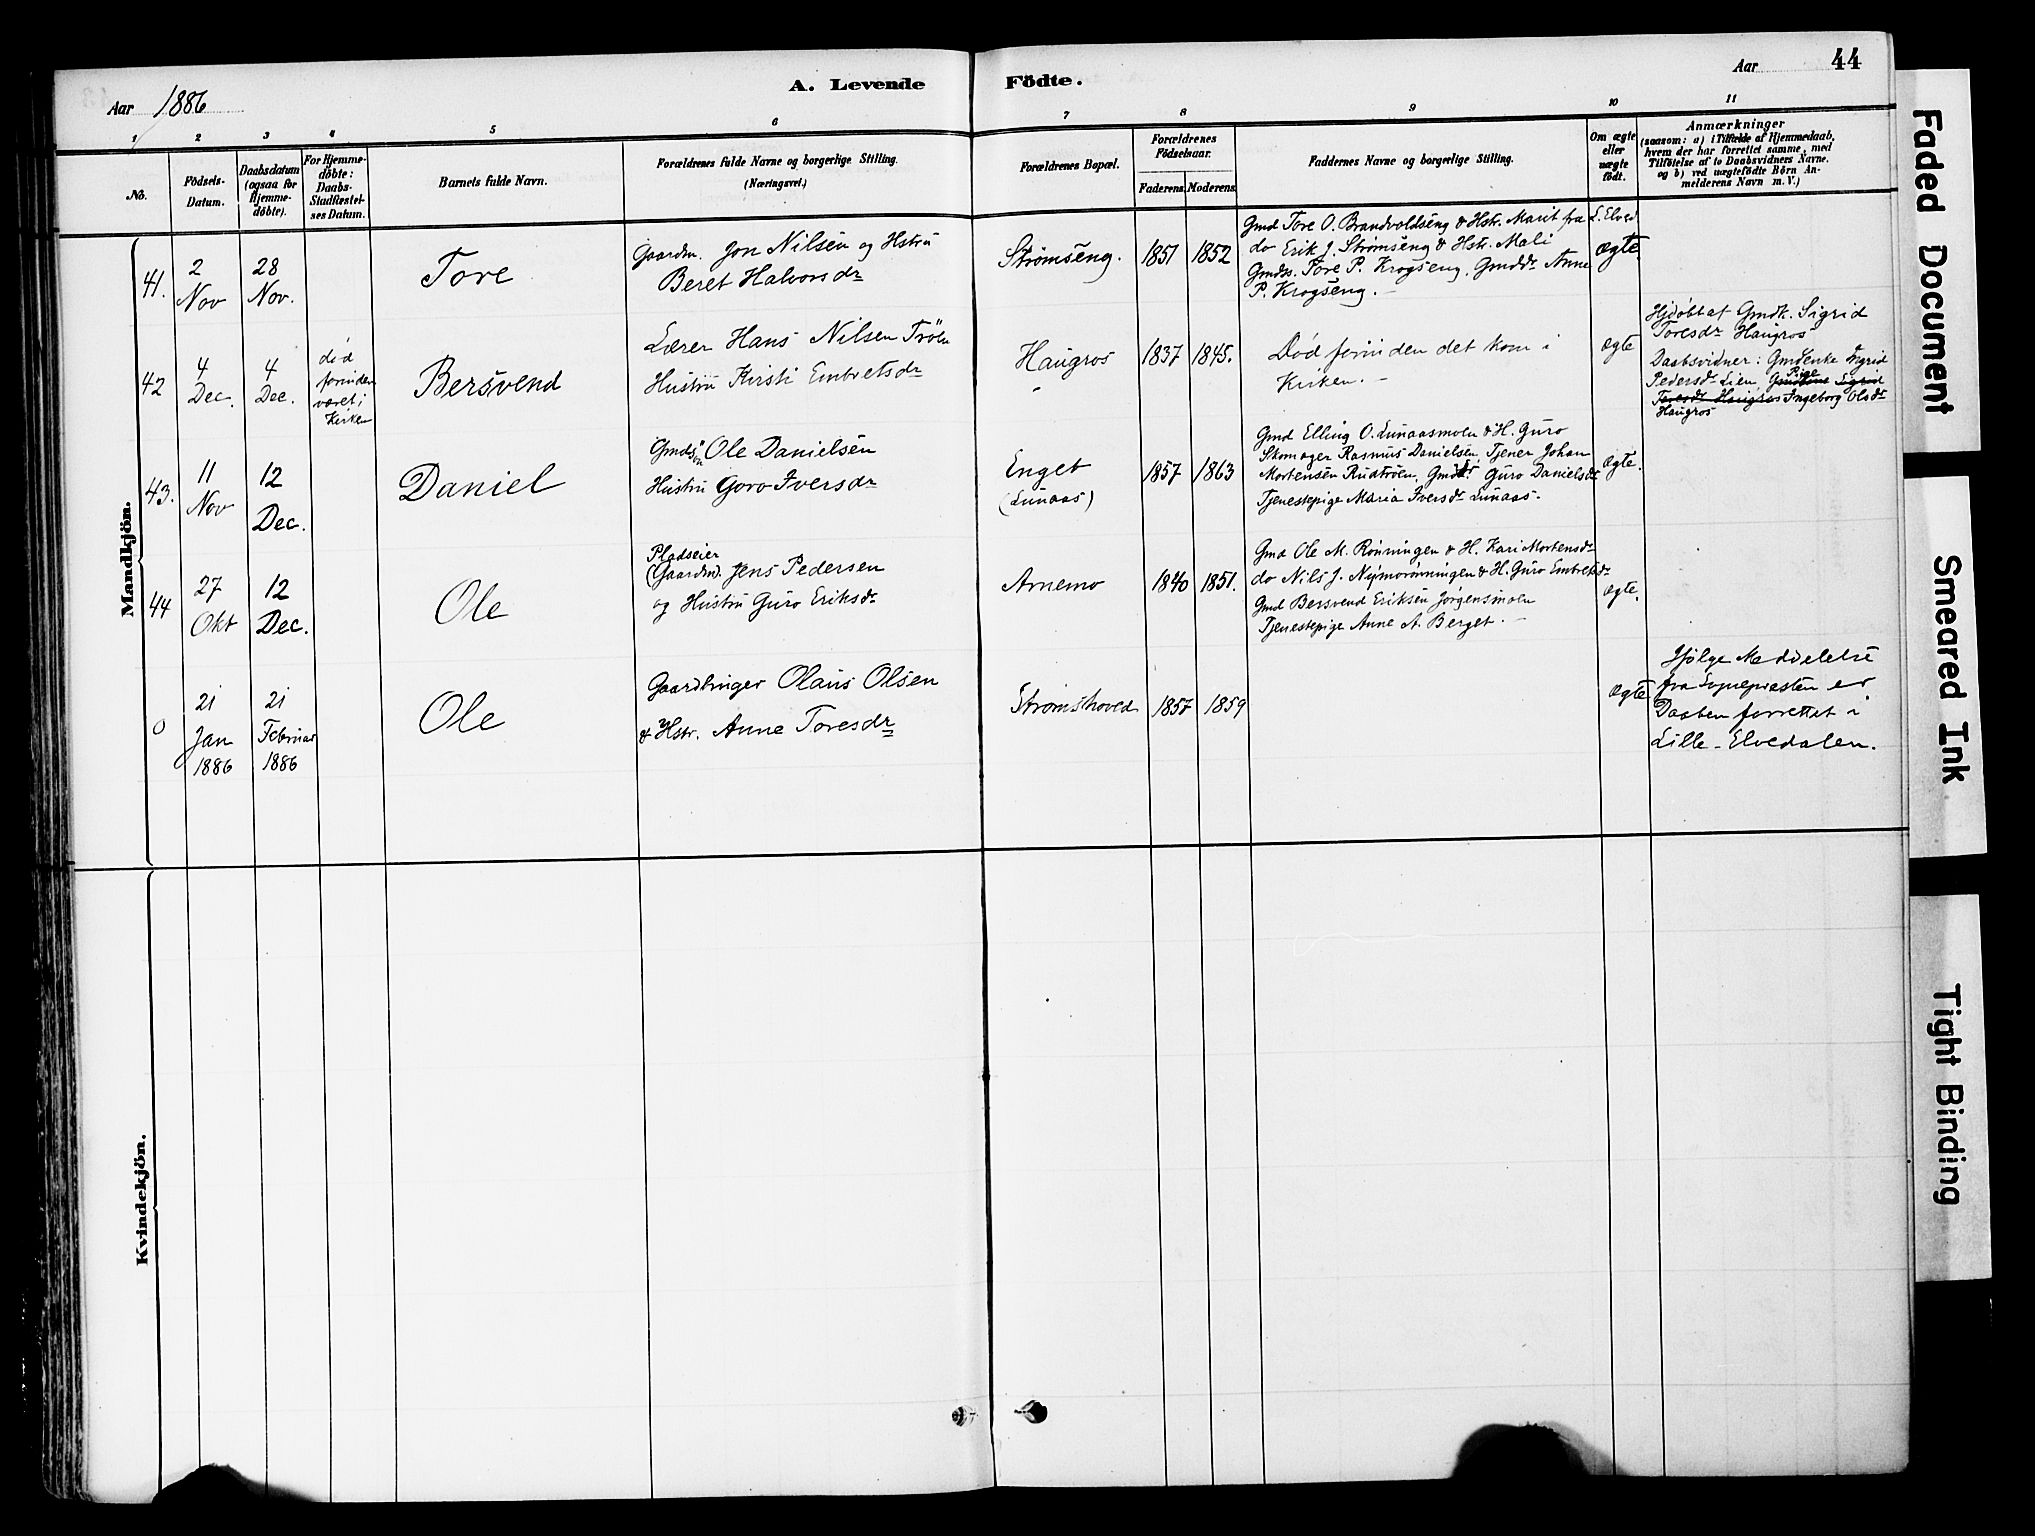 Aar 1886
A. Levende Födte.
Aar
44
1 2 3 4 5 6 7 8 9 10 11
No.
Födsels-Datum.
Daabsdatum (ogsaa for Hjemme-döbte).
For Hjemme-döbte: Daabs-Stadfæstel-ses Datum.
Barnets fulde Navn.
Forældrenes fulde Navne og borgerlige Stilling.
(Næringsvei.)
Forældrenes Bopæl.
Forældrenes Födselsaar.
Faderens. Moderens.
Faddernes Navne og borgerlige Stilling.
Om ægte eller uægte födt.
Anmærkninger
(saasom: a) i Tilfælde af Hjemmedaab,
hvem der har forrettet samme, med
Tilföielse af to Daabsvidners Navne,
og b) ved uægtefödte Börn An-
melderens Navn m. V.)
Mandkjön.
41.
2 Nov
28 Nov.
Tore
Gaardm. Jon Nilsen og Hstru
Beret Halvorsdr
Strømseng.
1851 1852
Gmd Tore O. Brandvoldseng & Hstr. Marit fra L. Elved
do Erik J. Strømseng & Hstr. Mali
Gmds. Tore P. Krogseng, Gmddr Anne
P. Krogseng. –
Ægte.
42
4 Dec.
4 Dec.
død
forinden
været i
Kirken
Bersvend
Lærer Hans Nilsen Trøen
Hustru Kirsti Embretsdr
Haugros
1837 1845.
Død forinden det kom i
Kirken. –
ægte
Hjdøbt af Gmdk. Sigrid
Toresdr Haugros
Daabsvidner: Gmdenke Ingrid
Pedersdr Lien, Pige Sigrid
Toresdr Haugros Ingeborg Olsdr
Haugros
43.
11 Nov
12 Dec.
Daniel
Gmdsøn Ole Danielsen
Hustru Goro Iversdr
Enget
(Lunaas)
1857 1863
Gmd Elling O. Lunaasmoen & H. Guro
Skomager Rasmus Danielsen, Tjener Johan
Mortensen Rudtrøen, Gmddr. Guro Danielsdr
Tjenestepige Maria Iversdr Lunaas.
Ægte.
44
27 Okt
12 Dec.
Ole
Pladseier
(Gaardm). Jens Pedersen
og Hustru Guro Eriksdr
Arnemo
1840 1851.
Gmd Ole M. Rønningen & H. Kari Mortensdr
do Nils J. Nymorønningen & H. Guro Embretsdr
Gmd Bersvend Eriksen Jørgensmoen
Tjenestepige Anne A. Berget. –
Ægte.
0
21
Jan
1886
21
Februar
1886
Ole
Gaardbruger Olaus Olsen
& Hstr. Anne Toresdr
Strømshoved
1857 1859
Ægte
Ifølge Meddelelse
fra Sognepresten er
Daaben forrettet i
Lille-Elvedalen.
Kvindekjön.
Faded Document
Smeared Ink
Tight Binding